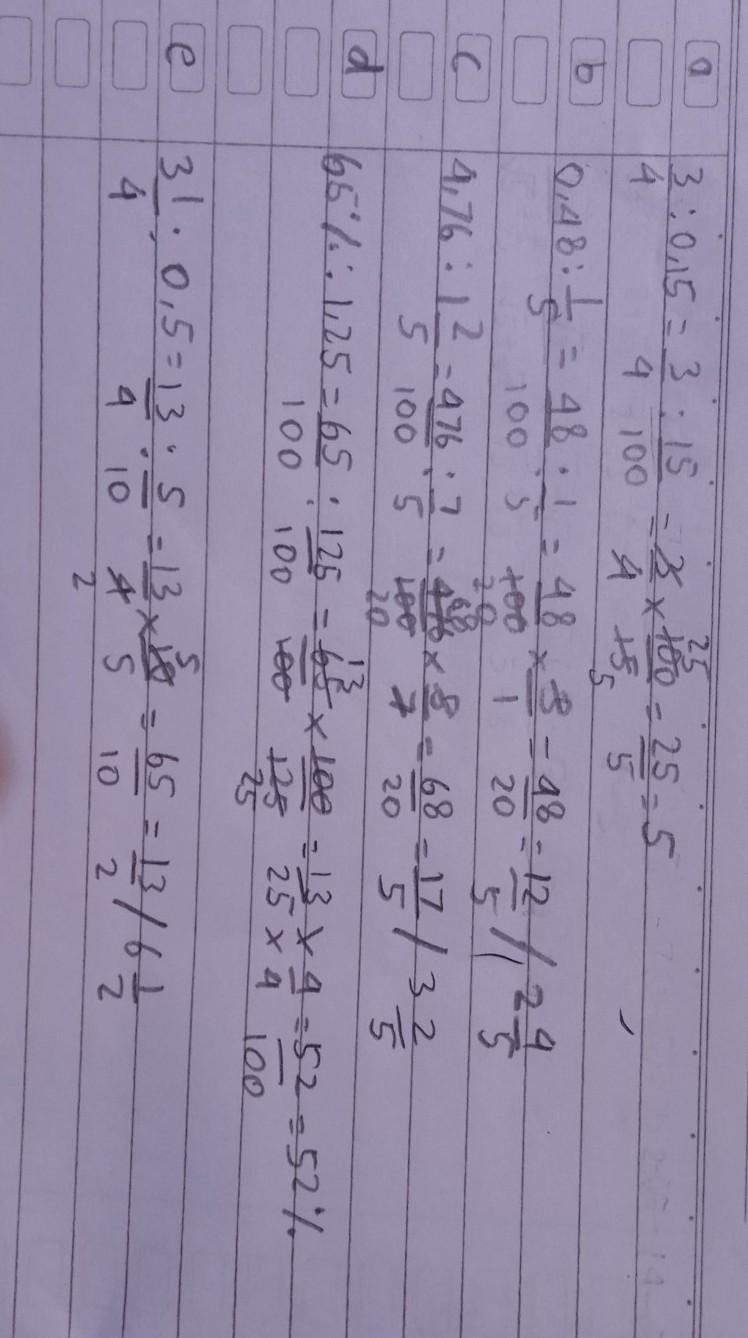 a 3/4 : 0,15 = 3/4 : 15/100 = 3/4 × 100/15 25 5 = 25/5 = 5
b 0,48 : 1/5 = 48/100 : 1/5 = 48/100 20 × 5/1 = 48/20 = 12/5 // 2 4/5
c 4,76 : 1 2/5 = 476/100 : 7/5 = 476/100 68 20 × 8/7 = 68/20 = 17/5 / 3 2/5
d 65% : 1,25 = 65/100 : 125/100 = 65/100 13 × 100/125 25 = 13/25 × 4/4 = 52/100 = 52%
e 3 1/4 : 0,5 = 13/4 : 5/10 = 13/4 2 × 10/5 5 = 65/10 = 13/2 / 6 1/2